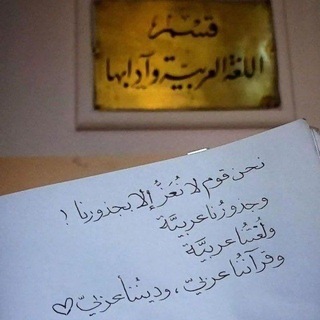 قسم
اللغة العربية وآدابها
نحن قوم لا نُعَزُّ إلا بجذورنا !
وجذورُنا عربيَّة
ولُغتنا عربيَّة
وقرآننا عربيّ ، وديننا عربيّ ♡